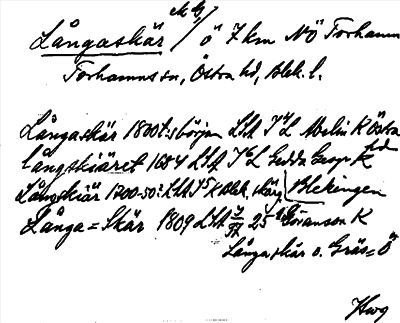 Långaskär / Ö 7 km NÖ Torhamn
Torhamns sn, Östra hd, Blek. l.
Långaskär 1800t:s början LSA Melin K Östra hd
långskiäret 1684 LSA Gedda Geogr K
Långskiär 1700-50: LSA K Blek. skärg Blekingen
Långa=Skär 1809 LSA 25 Göransson K
Långaskär o. Gräs=Ö
Hwg